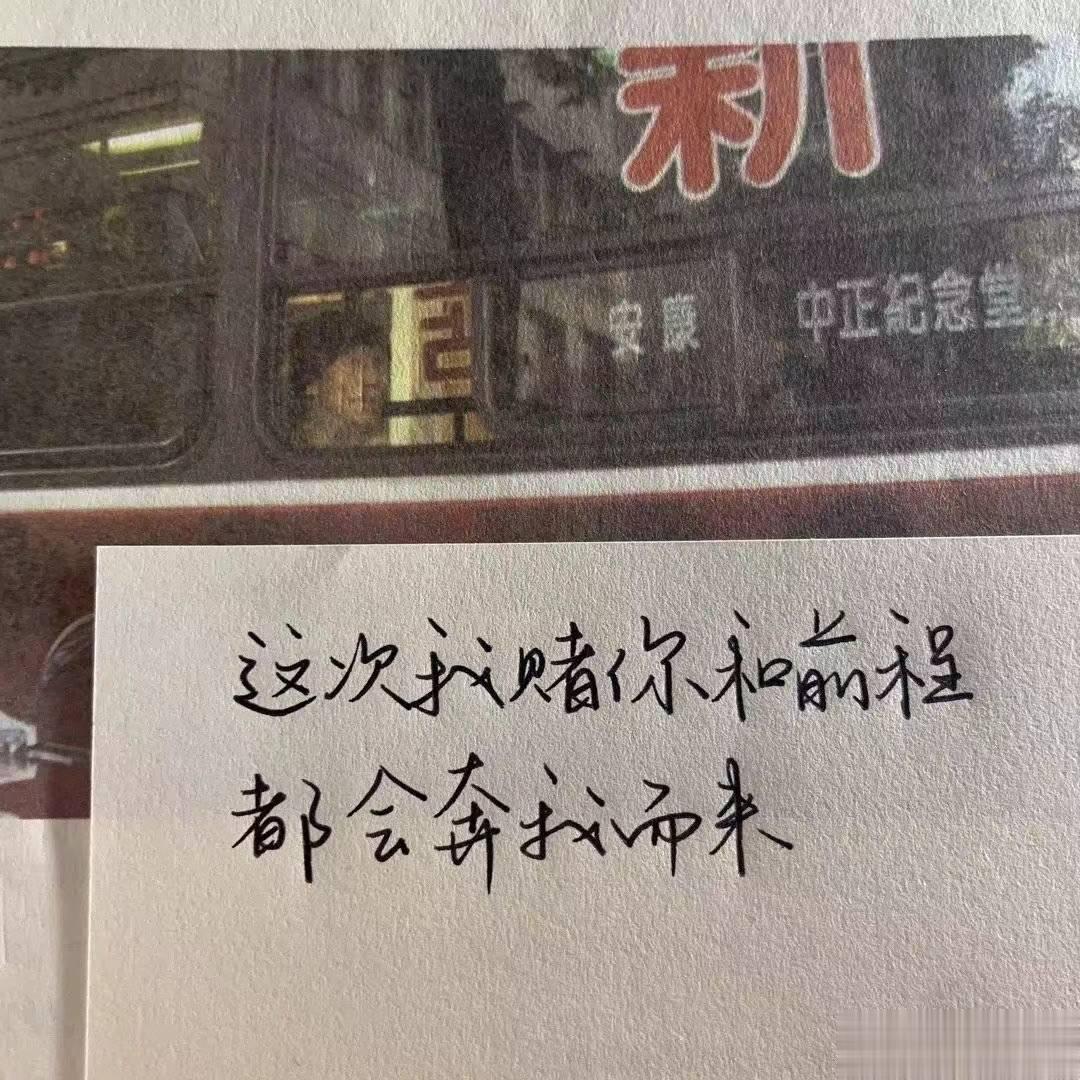 新
安康
中正紀念堂
这次我赌你和前程
都会奔我而来